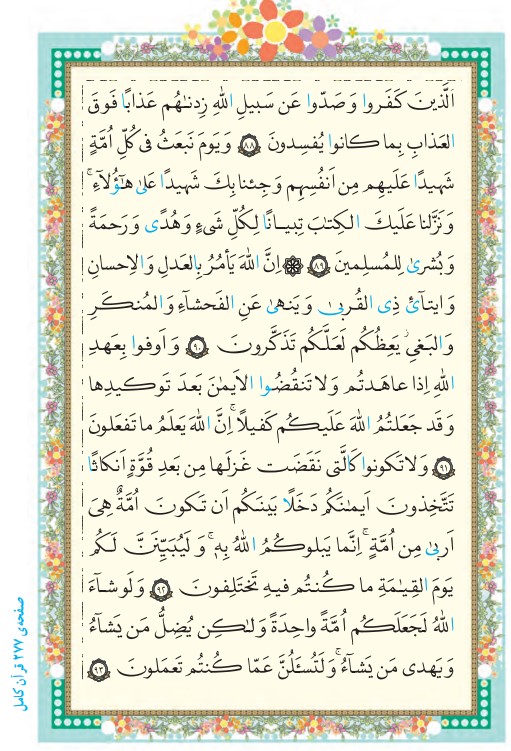 اَلَّذينَ كَفَروا وَ صَدّوا عَن سَبيلِ اللّٰهِ زِدنٰهُم عَذابًا فَوقَ
العَذابِ بِما كانوا يُفسِدونَ ﴿٨٨﴾ وَ يَومَ نَبعَثُ فى كُلِّ اُمَّةٍ
شَهيدًا عَلَيهِم مِن اَنفُسِهِم وَ جِئنا بِكَ شَهيدًا عَلىٰ هٰٓؤُلاۤءِ ۚ
وَ نَزَّلنا عَلَيكَ الكِتٰبَ تِبيانًا لِكُلِّ شَىءٍ وَ هُدًى وَ رَحمَةً
وَ بُشرىٰ لِلمُسلِمينَ ﴿٨٩﴾ ۞ اِنَّ اللّٰهَ يَأمُرُ بِالعَدلِ وَ الاِحسانِ
وَ ايتآئِ ذِى القُربىٰ وَ يَنهىٰ عَنِ الفَحشآءِ وَ المُنكَرِ
وَ البَغىِ ۚ يَعِظُكُم لَعَلَّكُم تَذَكَّرونَ ﴿٩٠﴾ وَ اَوفوا بِعَهدِ
اللّٰهِ اِذا عاهَدتُم وَ لا تَنقُضُوا الاَيمٰنَ بَعدَ تَوكيدِها
وَ قَد جَعَلتُمُ اللّٰهَ عَلَيكُم كَفيلًا ۚ اِنَّ اللّٰهَ يَعلَمُ ما تَفعَلونَ
﴿٩١﴾ وَ لا تَكونوا كَالَّتى نَقَضَت غَزلَها مِن بَعدِ قُوَّةٍ اَنكاثًا
تَتَّخِذونَ اَيمٰنَكُم دَخَلًا بَينَكُم اَن تَكونَ اُمَّةٌ هِىَ
اَربىٰ مِن اُمَّةٍ ۚ اِنَّما يَبلوكُمُ اللّٰهُ بِهٖ ۚ وَ لَيُبَيِّنَنَّ لَكُم
يَومَ القِيٰمَةِ ما كُنتُم فيهِ تَختَلِفونَ ﴿٩٢﴾ وَ لَو شآءَ
اللّٰهُ لَجَعَلَكُم اُمَّةً واحِدَةً وَ لٰكِن يُضِلُّ مَن يَشآءُ
وَ يَهدى مَن يَشآءُ ۚ وَ لَتُسئَلُنَّ عَمّا كُنتُم تَعمَلونَ ﴿٩٣﴾
صفحه‌ی ۲۷۷ قرآن کامل